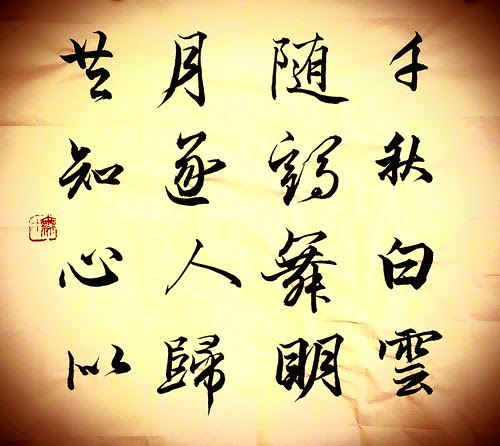 千秋白雲
随鶴舞明
月逐人歸
共知心似